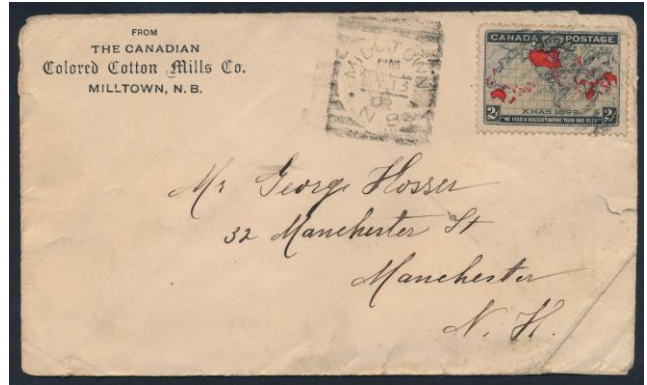 FROM
THE CANADIAN
Colored Cotton Mills Co.
MILLTOWN, N. B.
MILLTOWN
CANADA POSTAGE
XMAS 1898
2c 2c
"WE HOLD A VASTER EMPIRE THAN HAS BEEN"
Mr George Hosser
32 Manchester St
Manchester
N. H.